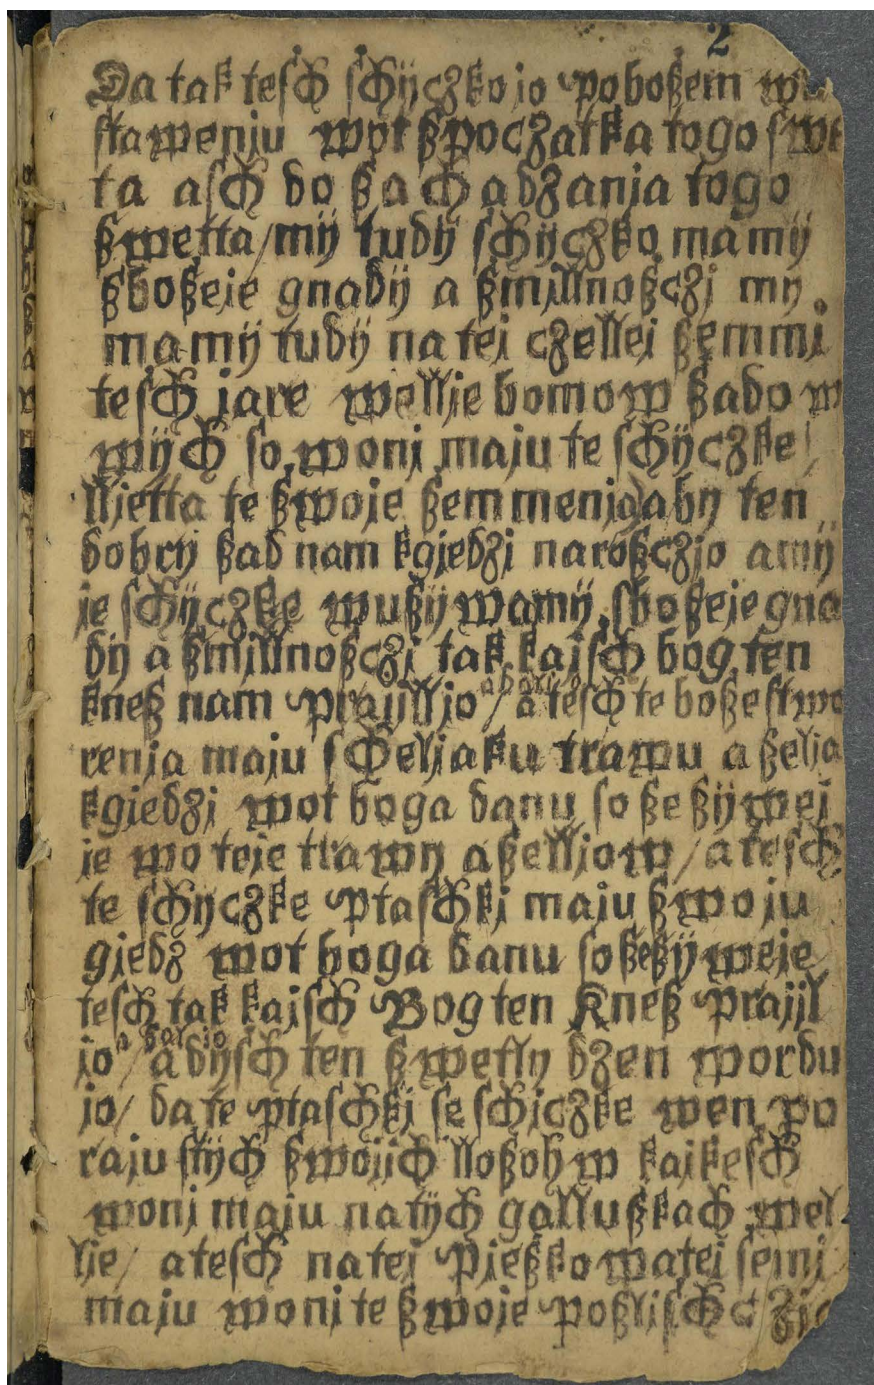 2
Da tak teſch ſchÿczko jo po boßem
ſtawenju wot ßpoczatka togo ſwe
ta aſch do ßachadzanja togo
ßwetta/ mÿ tudÿ ſchÿczko mamÿ
ßboßeje gnadÿ a ßmillnoßczj my
mamÿ tudÿ na tej czellej ßemmi
teſch jare wellje bomow ßado w
wÿch ſo, woni maju te ſchÿczke
lljetta te ßwoje ßemmenja aby ten
dobry ßad nam kgjedzi naroßczjo a mÿ
je ſchÿczke wußÿwamÿ, ſboßeje gna
dÿ a ßmillnoßczj tak kajſch bog ten
kneß nam prajilljo / a teſch te boße ſtwo
renja maju ſcheljaku trawu a ßelja
kgjedzi wot boga danu ſo ße ßÿwej
je wo teje trawy a ßelljow / a teſch
te ſchyczke ptaſchkj maju ßwoju
gjedz wot boga danu ſo ße ßÿweje
teſch tak kajſch Bog ten Kneß prajil
jo / a dÿſch ten ßwetly dzen wordu
jo/ da te ptaſchkj ſe ſchiczke wen po
raju ſtÿch ßwojich lloßohw kajkeſch
woni maju na tÿch gallußkach wel
lje/ a teſch na tej Pjeßkowatej ſemi
maju woni te ßwoje